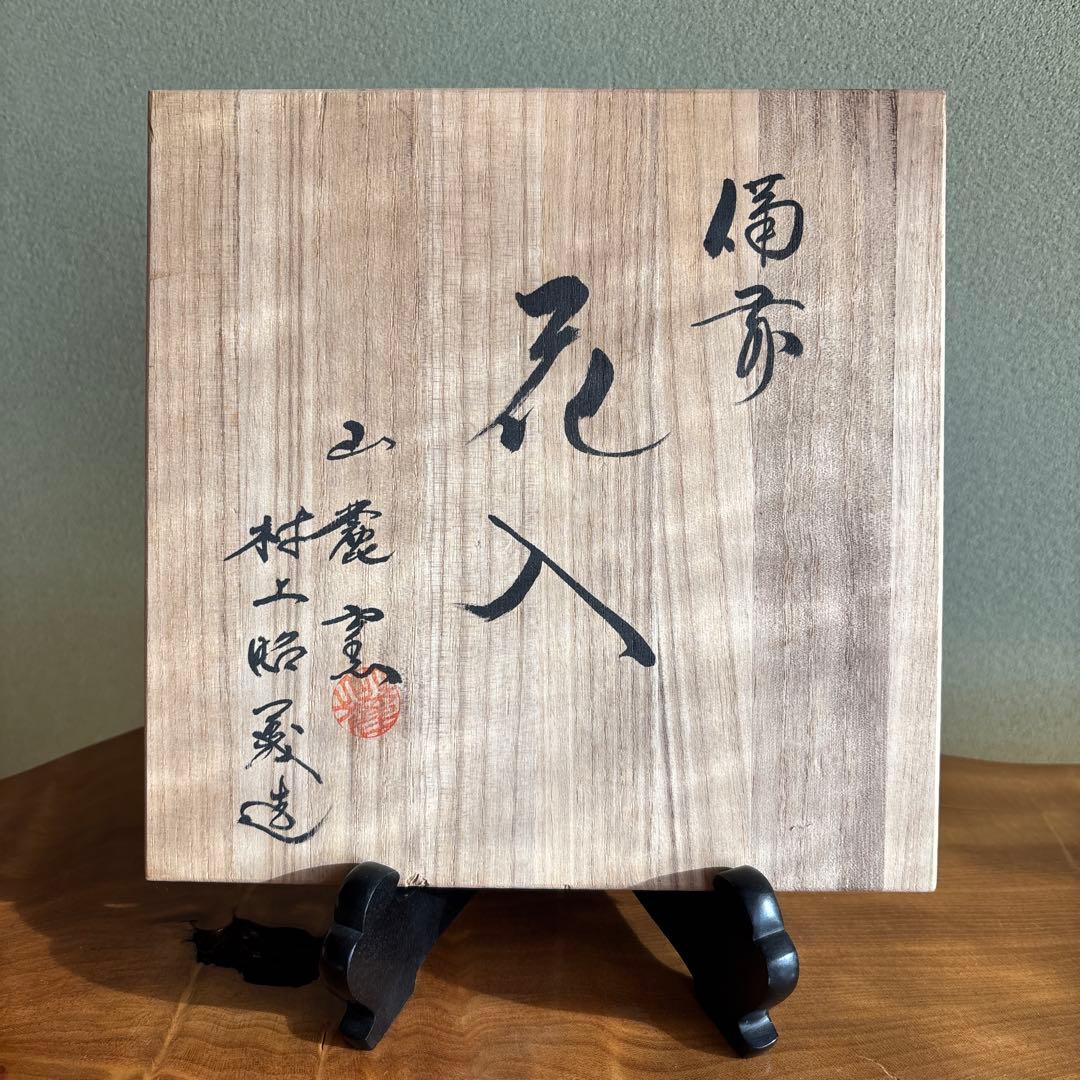 備前
花入
山麓窯
村上昭美造